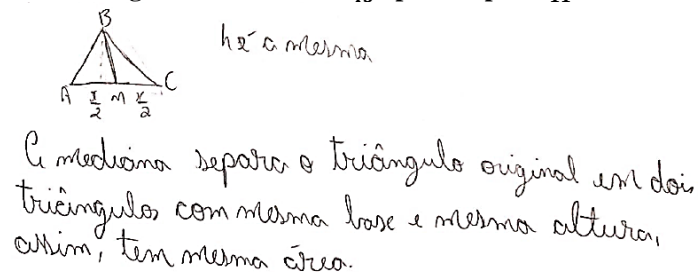 B
h é a mesma
A x/2 M x/2 C
A mediana separa o triângulo original em dois
triângulos com mesma base e mesma altura,
assim, tem mesma área.